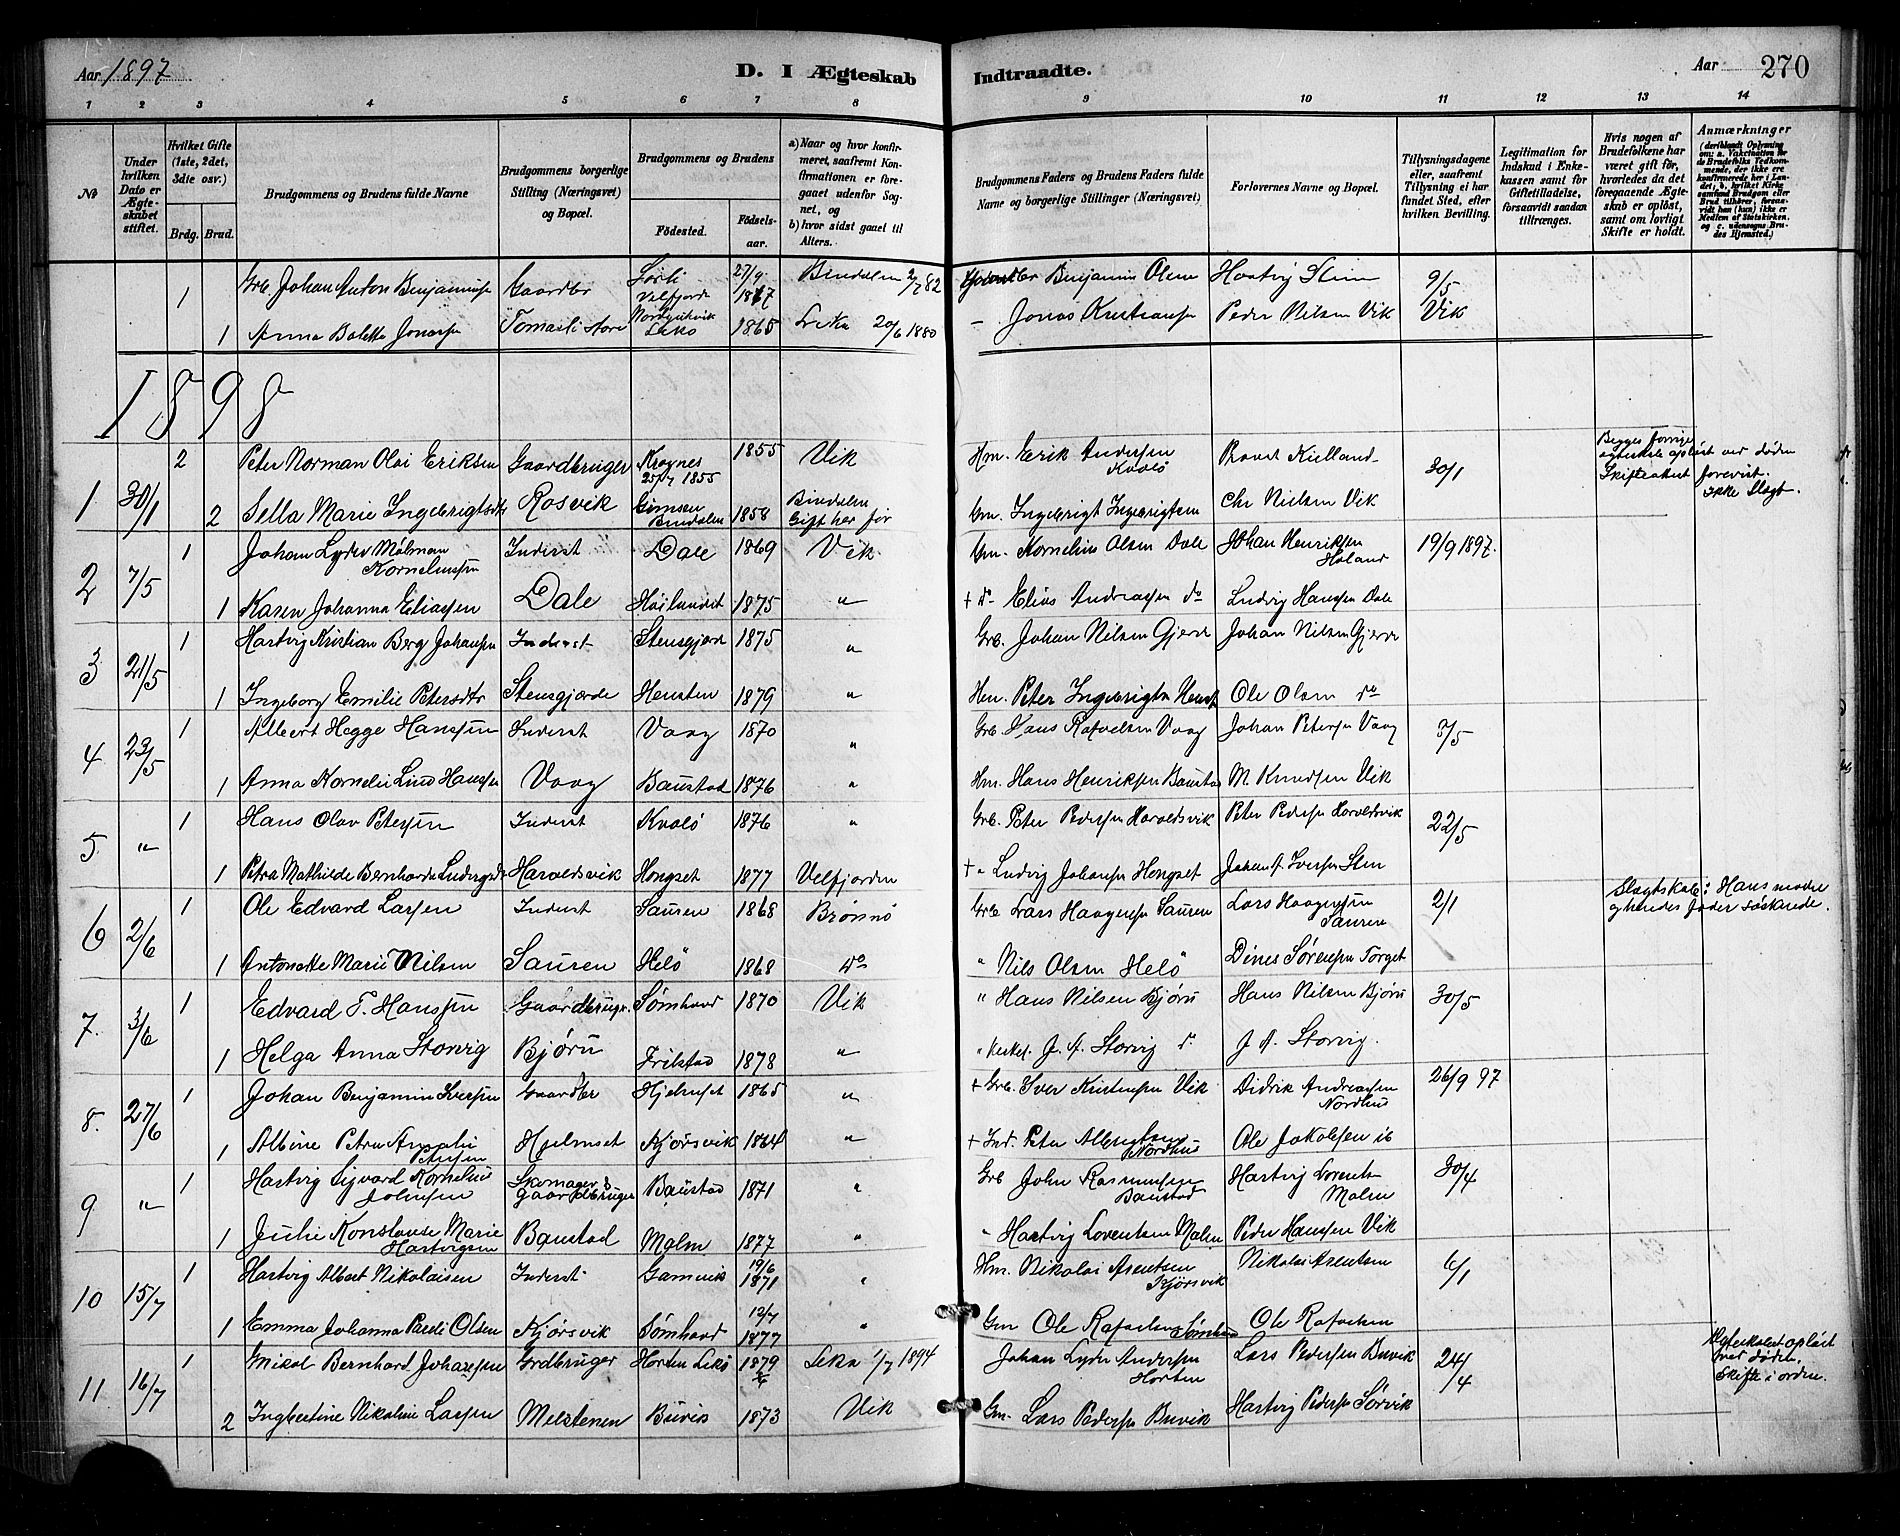 Aar 1897
D. I Ægteskab Indtraadte.
Aar 270
1 2 3 4 5 6 7 8 9 10 11 12 13 14
No
Under hvilken Dato er Ægteskabet stiftet.
Hvilket Gifte (1ste, 2det, 3die osv.)
Brdg. Brud.
Brudgommens og Brudens fulde Navne
Brudgommens borgerlige Stilling (Næringsvei) og Bopæl.
Brudgommens og Brudens
Födested.
Födselsaar.
a) Naar og hvor konfirmeret, saafremt Konfirmationen er foregaaet udenför Sognet, og
b) hvor sidst gaaet til Alters.
Brudgommens Faders og Brudens Faders fulde Navne og borgerlige Stillinger (Næringsvei)
Forlovernes Navne og Bopæl.
Tillysningsdagene eller, saafremt Tillysning ei har fundet Sted, efter hvilken Bevilling.
Legitimation for Indskud i Enkekassen samt for Giftetilladelse, forsaavidt saadan tiltrænges.
Hvis nogen af Brudefolkene har været gift för, hvorledes da det foregaaende Ægteskab er oplöst, samt om lovligt Skifte er holdt.
Anmærkninger
(deriblandt Oplysning om: a. Vakcination for de Brudefolks Vedkommende, der ikke ere konfirmerede her i Landet, b. hvilket Kirkesamfund Brudgom eller Brud tilhörer, forsaavidt han (hun) ikke er Medlem af Statskirken, og c. udensogns Brudes Hjemsted.)
1 Grb Johan Anton Benjaminsen Gaardbr Sörli Velfjord 27/9 1867 Bindalen 2/7 82 Gaardbr Benjamin Olsen Hartvig Sten 9/5
1 Anna Bolette Jonasen Tomasli store Nordgutvik Leka 1865 Leka 20/6 1880 – Jonas Kristiansen Peder Nilsen Vik Vik
1898
2 Peter Norman Olai Eriksen Gaardbruger Krognes 25/7 1855 1855 Vik Hm. Erik Andersen Kvalö Provst Kielland 30/1 Begges forrige ægteskab oplöst ved döden Skifteattest forevist. ikke Slægt.
1 30/1 2 Sella Marie Ingebrigtsdtr Rosvik Gimsen Bindalen 1858 Bindalen Gift her för Gm. Ingebrigt Ingebrigtsen Chr Nielsen Vik
1 Johan Lyder Mölman Korneliussen Inderst Dale 1869 Vik Gm. Kornelius Olsen Dale Johan Henriksen Holand 19/9 1897.
2 7/5 1 Karen Johanna Eliassen Dale Höilandet 1875 " + do Elias Andreassen do Ludvig Hansen Dale
1 Hartvig Kristian Berg Johansen Inderst Stensgjerde 1875 " Grb. Johan Nilsen Gjerde Johan Nilsen Gjerde
3 21/5 1 Ingeborg Emilie Petersdtr Stensgjerde Hensten 1879 " Hm. Peter Ingebrigtsen Henst Ole Olsen do
1 Albert Hegge Hanssen Inderst Vaag 1870 " Grb. Hans Rafaelsen Vaag Johan Petersen Vaag 3/5
4 23/5 1 Anna Kornelie Lind Hanssen Vaag Baustad 1876 " Hm. Hans Henriksen Baustad M. Knudsen Vik
1 Hans Olav Petersen Inderst Kvalö 1876 " Grb. Peter Pedersen Haroldsvik Peter Pedersen Haroldsvik 22/5
5 " 1 Petra Mathilde Bernharda Ludvigsdtr Haroldsvik Hongset 1877 Velfjorden + " Ludvig Johansen Hongset Johan A. Iversen Sten
1 Ole Edvard Larsen Inderst Sausen 1868 Brönnö Grb Lars Haagensen Sausen Lars Haagensen Sausen 2/1 Slægtskab: Hans moder og hendes fader söskende.
6 2/6 1 Antonette Marie Nilsen Sausen Helö 1868 do " Nils Olsen Helö Dines Sörensen Torget
1 Edvard T. Hanssen Gaardbruger Sömhavd 1870 Vik " Hans Nilsen Björu Hans Nilsen Björu 30/5
7. 3/6 1 Helga Anna Storvig Björu Frilstad 1878 " " J. A. Storvig J A. Storvig.
1 Johan Benjamin Iversen Gaardbr Hjelmset 1865 " + Grb. Iver Kristensen Vik Didrik Andreassen Nordhus 26/9 97
8. 27/6 1 Albine Petra Amalie Petersen Hjelmset Kjörsvik 1864 " + Ind. Peter Albrigtsen Nordhus Ole Jakobsen ib
1 Hartvig Sigvard Kornelius Johnsen Skomager & Gaardbruger Baustad 1871 " Grb John Rasmussen Baustad Hartvig Lorents Malm 30/4
9 " 1 Julie Konstanse Marie Hartvigsen Baustad Malm 1877 " " Hartvig Lorentsen Malm Peder Hansen Vik
1 Hartvig Albert Nikolaisen Inderst Gamvik 19/6 1871 " Hm. Nikolai Arentsen Kjörsvik Nikolai Arentsen 6/1
10 15/7 1 Emma Johanna Olsen Kjörsvik Sömhavd 12/7 1877 " Gm Ole Rafaelsen Sömhavd Ole Rafaelsen
1 Mikal Bernhard Johansen Grdbruger Horten Lekö 1879 Leka 1/7 1894 Johan Lyder Andersen Horten Lars Pedersen Buvik 24/4 Ægteskabet oplöst ved döden. Skifte i orden.
11 16/7 2 Ingbertine Nikoline Larsen Melstenen Buvik 1873 Vik Gm. Lars Pedersen Buvik Hartvig Pedersen Sörvik